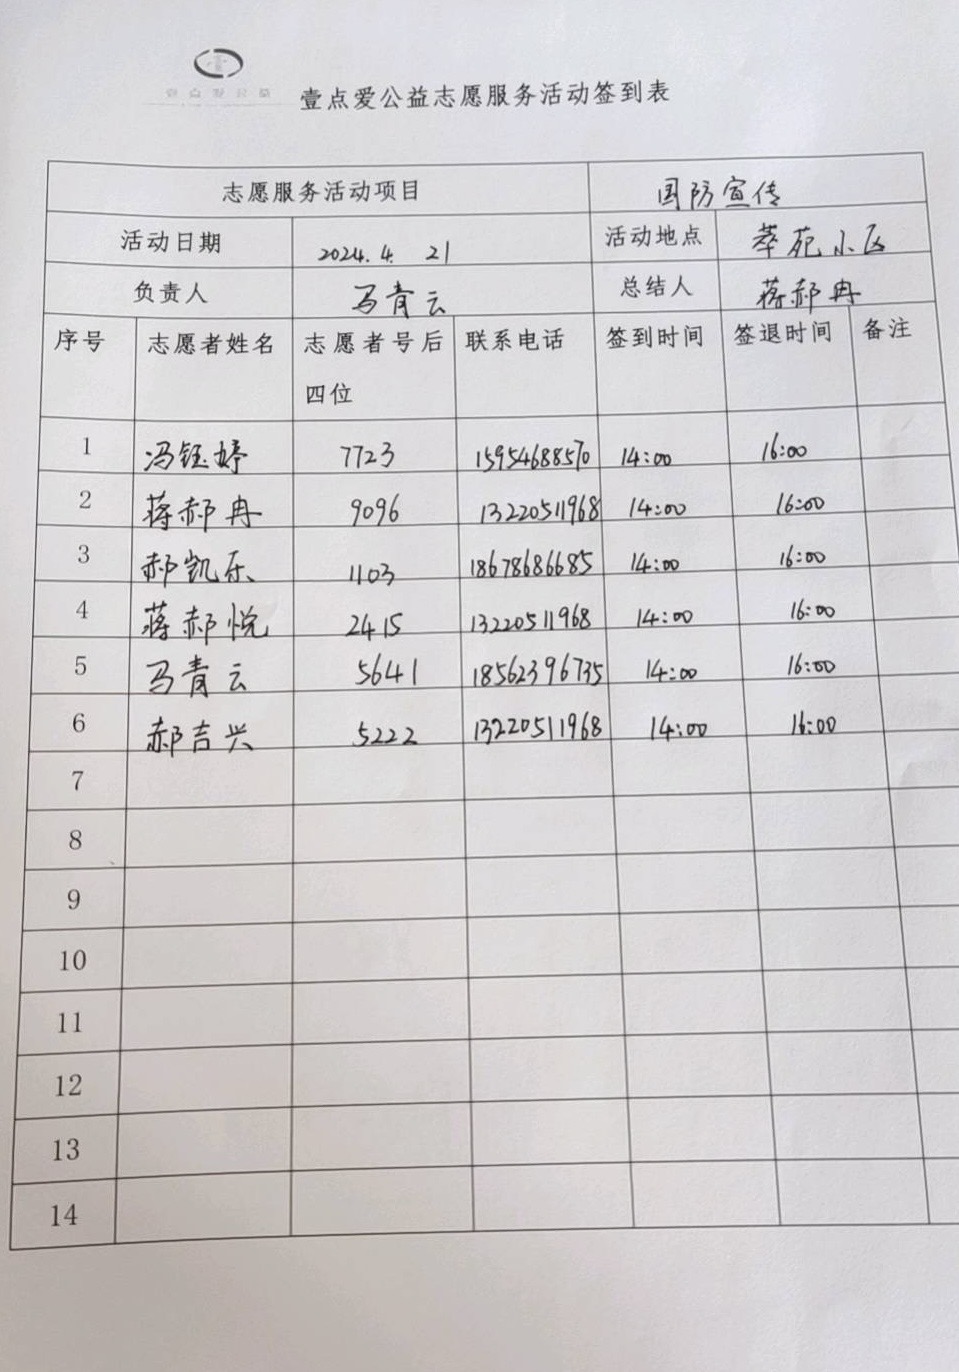 壹点爱公益志愿服务活动签到表
志愿服务活动项目 国防宣传
活动日期 2024.4.21 活动地点 萃苑小区
负责人 马青云 总结人 蒋郝冉
序号 志愿者姓名 志愿者号后四位 联系电话 签到时间 签退时间 备注
1 冯钰婷 7723 15954688570 14:00 16:00
2 蒋郝冉 9096 13220511968 14:00 16:00
3 郝凯乐 1103 18678686685 14:00 16:00
4 蒋郝悦 2415 13220511968 14:00 16:00
5 马青云 5641 18562396735 14:00 16:00
6 郝吉兴 5222 13220511968 14:00 16:00
7
8
9
10
11
12
13
14